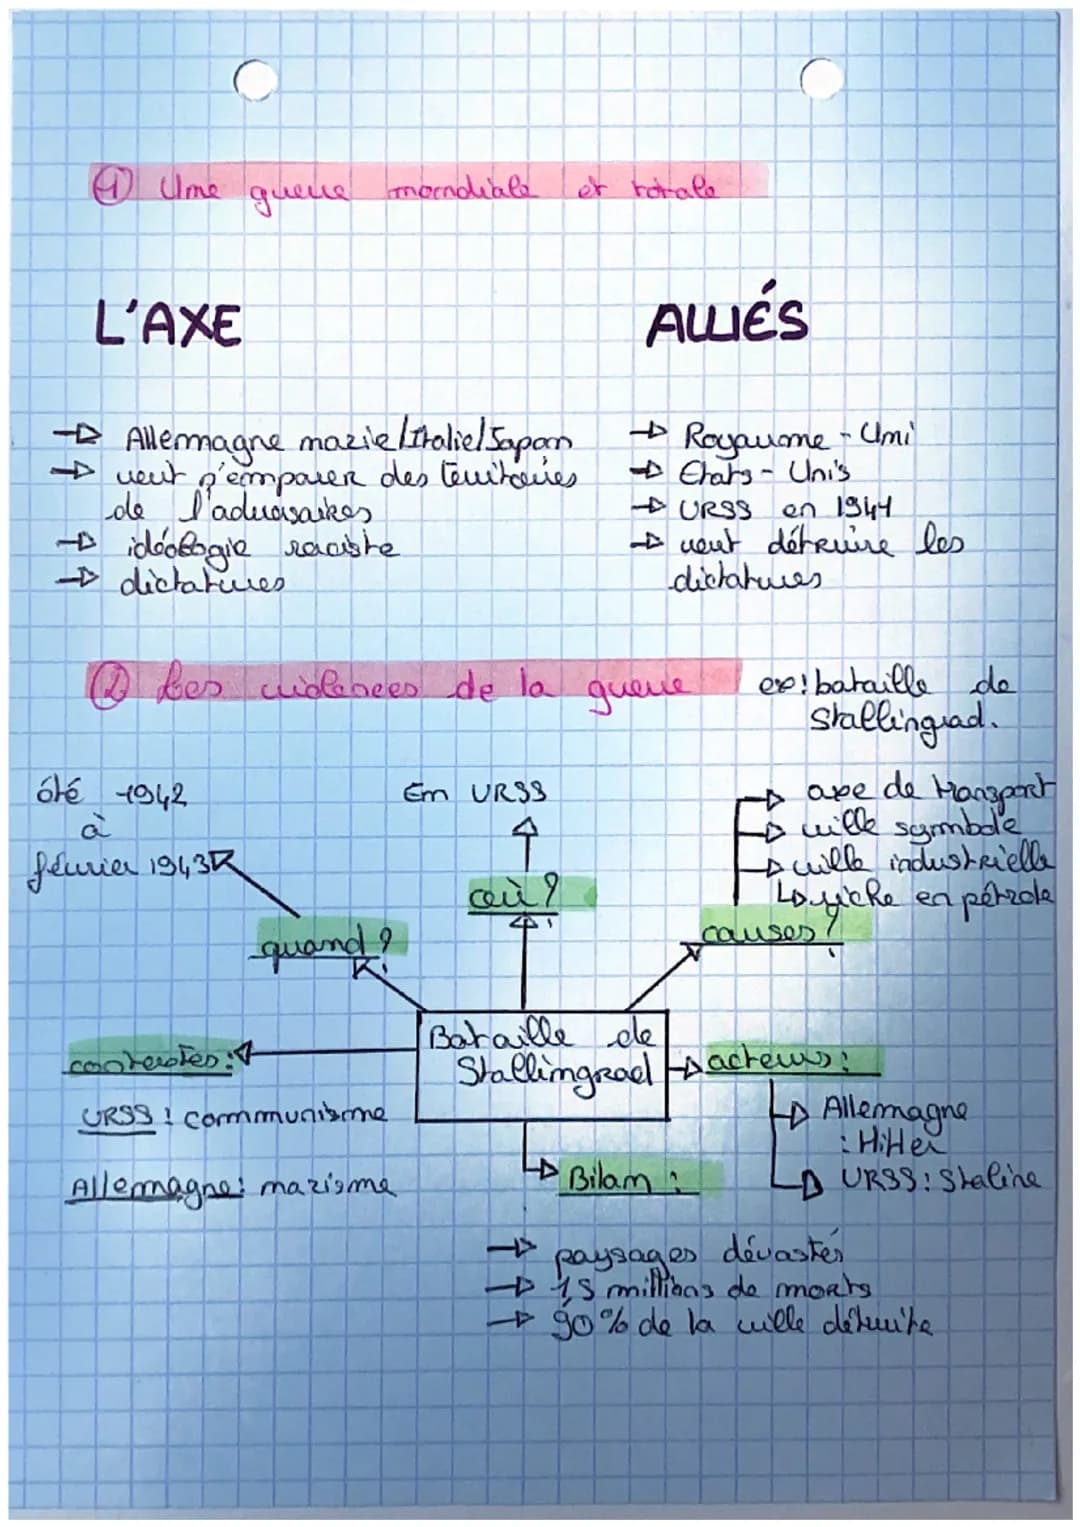 ① Une guerre mondiale et totale
L'AXE
→ Allemagne nazie/Italie/Japon
→ veut s'emparer des territoires
de l'adversaires
→ idéologie raciste
→ dictatures
ALLIÉS
→ Royaume - Uni
→ Etats - Unis
→ URSS en 1944
→ veut détruire les
dictatures
② Les violences de la guerre
ex: bataille de
Stallingrad.
été 1942
à
février 1943
quand ?
En URSS
où ?
→ axe de transport
→ ville symbole
→ ville industrielle
↳ riche en pétrole
causes ?
Bataille de
Stallingrad
contextes :
URSS : communisme
Allemagne : nazisme
acteurs :
→ Allemagne
: Hitler
→ URSS : Staline
Bilan :
→ paysages dévastés
→ 1,5 millions de morts
→ 90% de la ville détruite